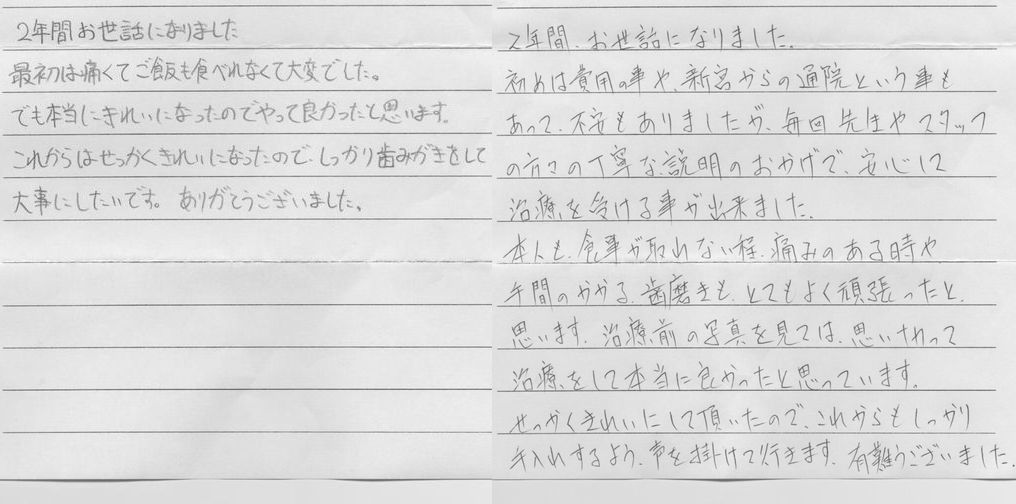 2年間お世話になりました
最初は痛くてご飯も食べれなくて大変でした。
でも本当にきれいになったのでやって良かったと思います。
これからはせっかくきれいになったので、しっかり歯みがきをして
大事にしたいです。 ありがとうございました。
2年間、お世話になりました。
初めは費用の事や、新宮からの通院という事も
あって、不安もありましたが、毎回 先生や スタッフ
の方々の丁寧な説明のおかげで、安心して
治療を受ける事が出来ました。
本人も、食事が取れない程、痛みのある時や
手間のかかる、歯磨きも、とてもよく頑張ったと、
思います。治療前の写真を見ては、思いきって
治療をして本当に良かったと思っています。
せっかくきれいにして頂いたので、これからもしっかり
手入れするよう、声を掛けて行きます。有難うございました。